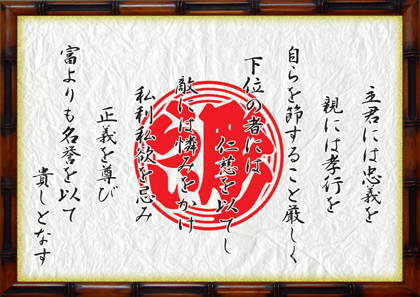 主君には忠義を
親には孝行を
自らを節すること厳しく
下位の者には
仁慈を以てし
敵には憐みをかけ
私利私欲を忌み
正義を尊び
富よりも名誉を以て
貴しとなす